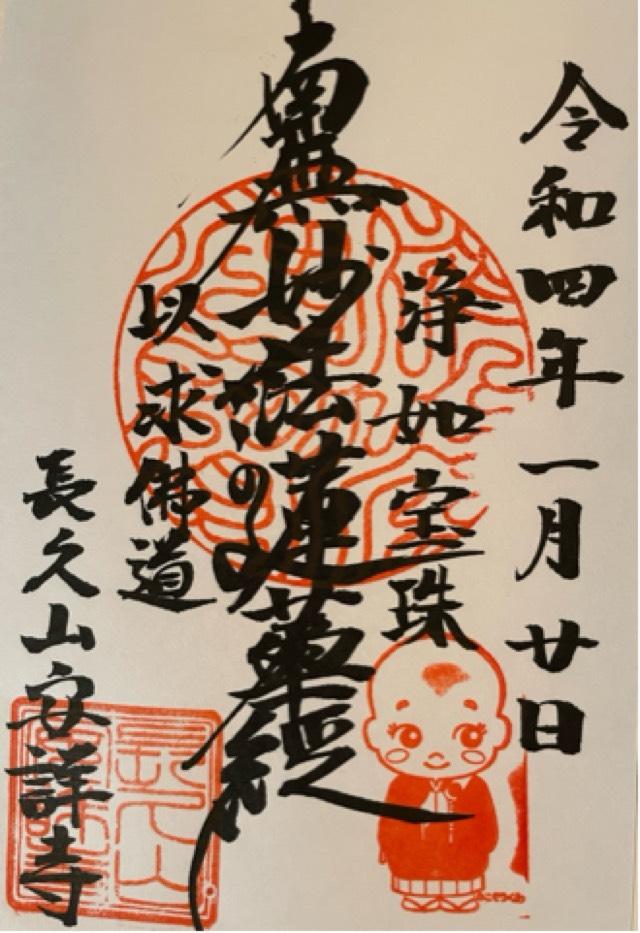 令和四年一月廿日
浄如宝珠
南無妙法蓮華経
以求佛道
長久山安詳寺